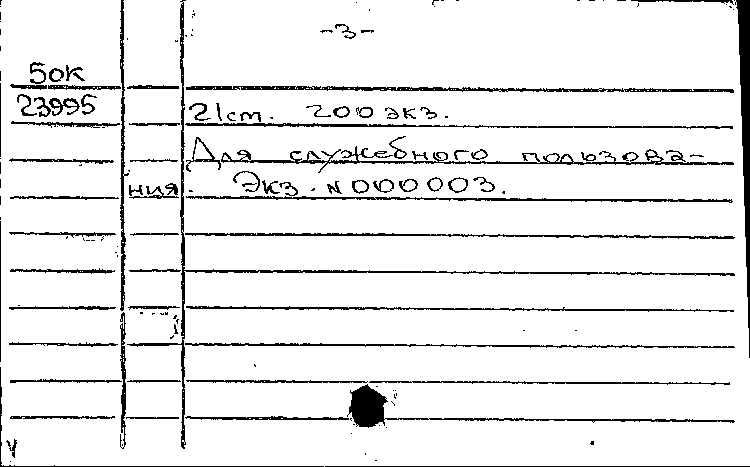 -3-
50к
23995 21см. 200 экз.
Для служебного пользова-
ния. Экз. N 000003.